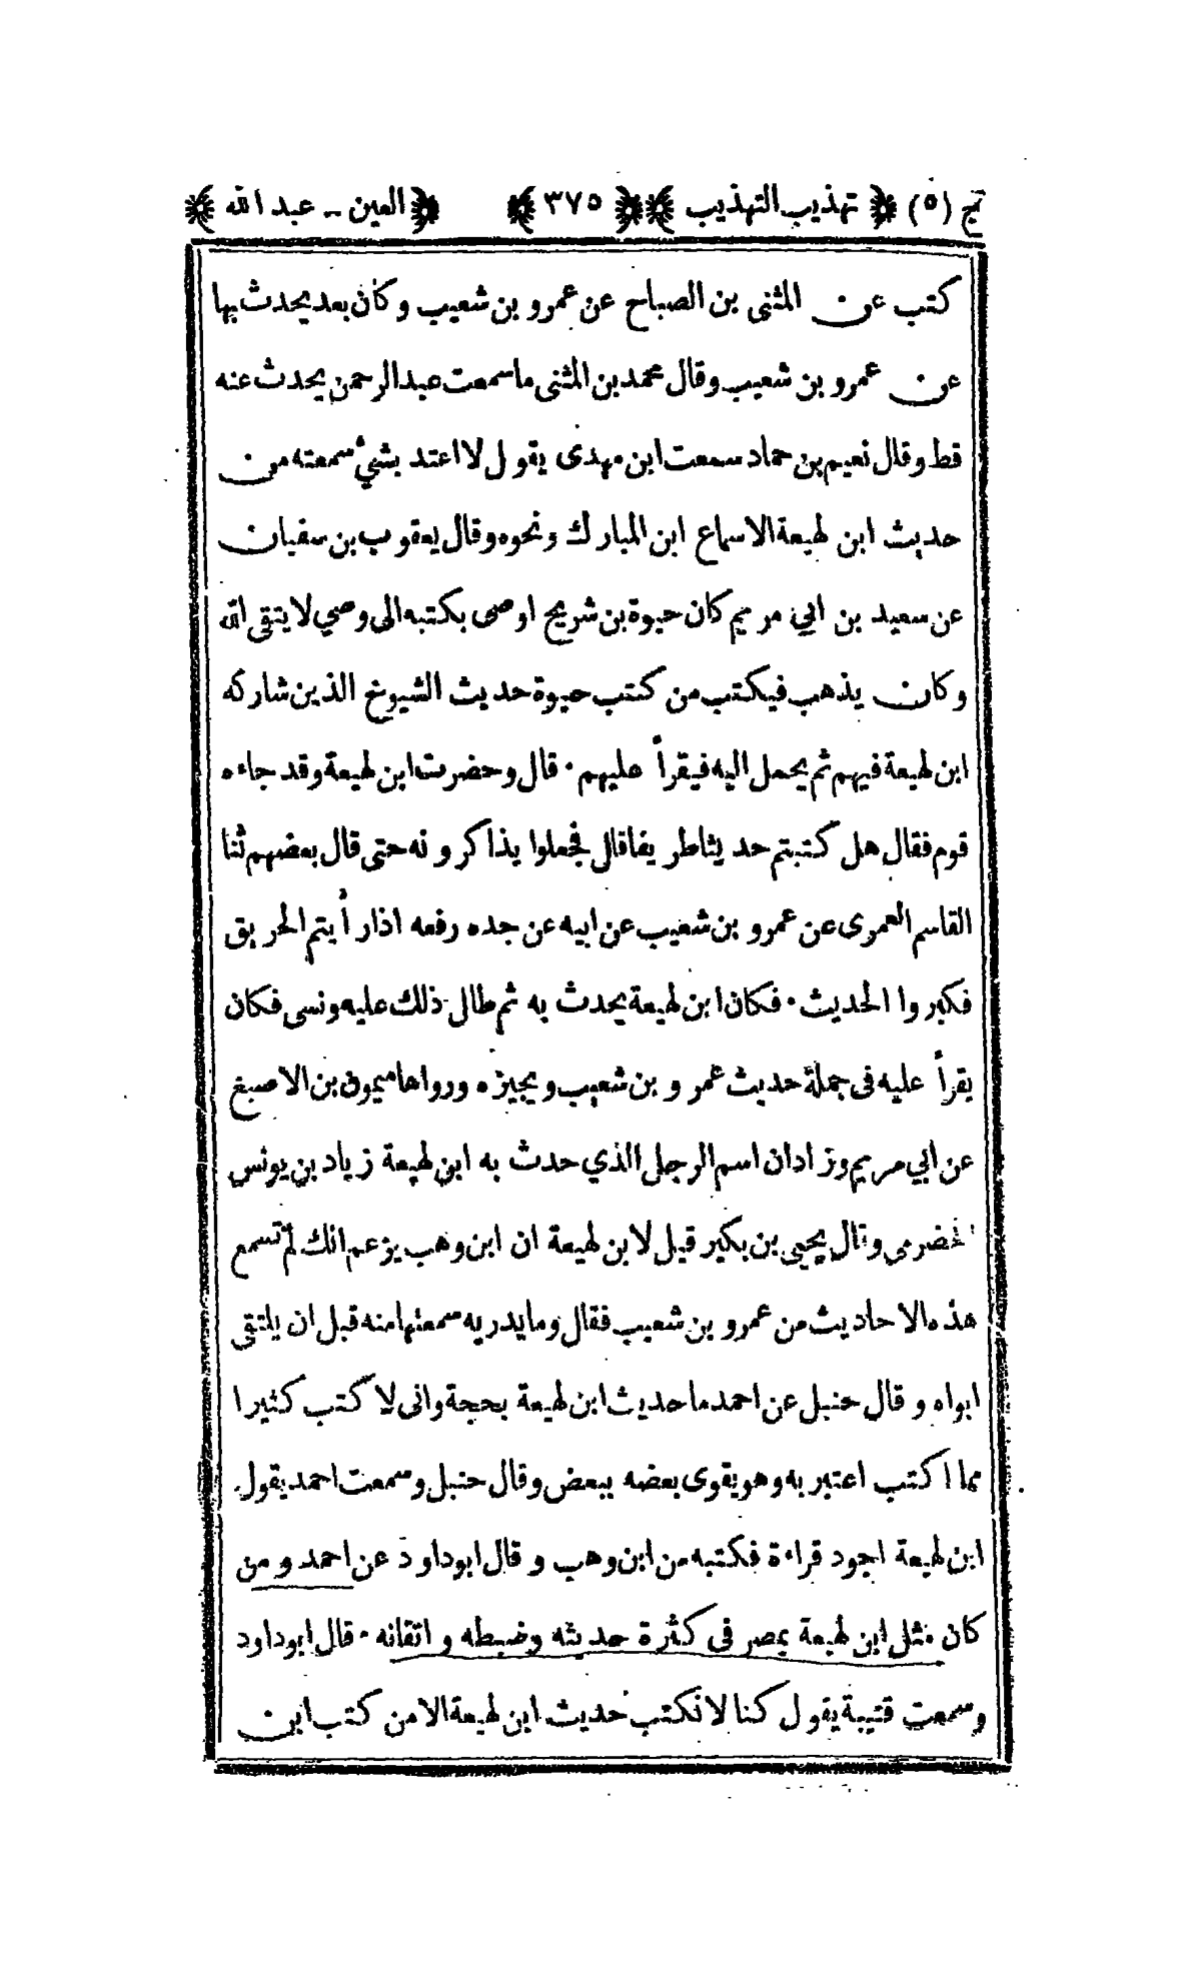 تهج (٥) ﴿ تهذيب التهذيب ﴾ ﴿ ٣٧٥ ﴾ ﴿ العين - عبد الله ﴾
كتب عن المثنى بن الصباح عن عمرو بن شعيب وكان بعد يحدث بها
عن عمرو بن شعيب وقال محمد بن المثنى ما سمعت عبد الرحمن يحدث عنه
قط وقال نعيم بن حماد سمعت ابن مهدى يقول لا اعتد بشيء سمعته من
حديث ابن لهيعة الا سماع ابن المبارك ونحوه وقال يعقوب بن سفيان
عن سعيد بن ابي مريم كان حيوة بن شريح اوصى بكتبه الى وصي لا يتقى الله
وكان يذهب فيكتب من كتب حيوة حديث الشيوخ الذين شاركه
ابن لهيعة فيهم ثم يحمل اليه فيقرأ عليهم · قال وحضرت ابن لهيعة وقد جاءه
قوم فقال هل كتبتم حديثا طريفا قال فجعلوا يذاكرونه حتى قال بعضهم ثنا
القاسم العمرى عن عمرو بن شعيب عن ابيه عن جده رفعه اذا رأيتم الحريق
فكبروا الحديث · فكان ابن لهيعة يحدث به ثم طال ذلك عليه ونسى فكان
يقرأ عليه فى جملة حديث عمرو بن شعيب ويجيزه ورواها ميمون بن الاصبغ
عن ابي مريم وزاد ان اسم الرجل الذي حدث به ابن لهيعة زياد بن يونس
الحضرمى وقال يحيى بن بكير قيل لابن لهيعة ان ابن وهب يزعم انك لم تسمع
هذه الاحاديث من عمرو بن شعيب فقال وما يدريه سمعتها منه قبل ان يلتقى
ابواه وقال حنبل عن احمد ما حديث ابن لهيعة بحجة وانى لا كتب كثيرا
مما اكتب اعتبر به وهو يقوى بعضه ببعض وقال حنبل وسمعت احمد يقول
ابن لهيعة اجود قراءة فكتبه من ابن وهب وقال ابو داود عن احمد ومن
كان مثل ابن لهيعة بمصر فى كثرة حديثه وضبطه واتقانه · قال ابو داود
وسمعت قتيبة يقول كنا لا نكتب حديث ابن لهيعة الا من كتب ابن